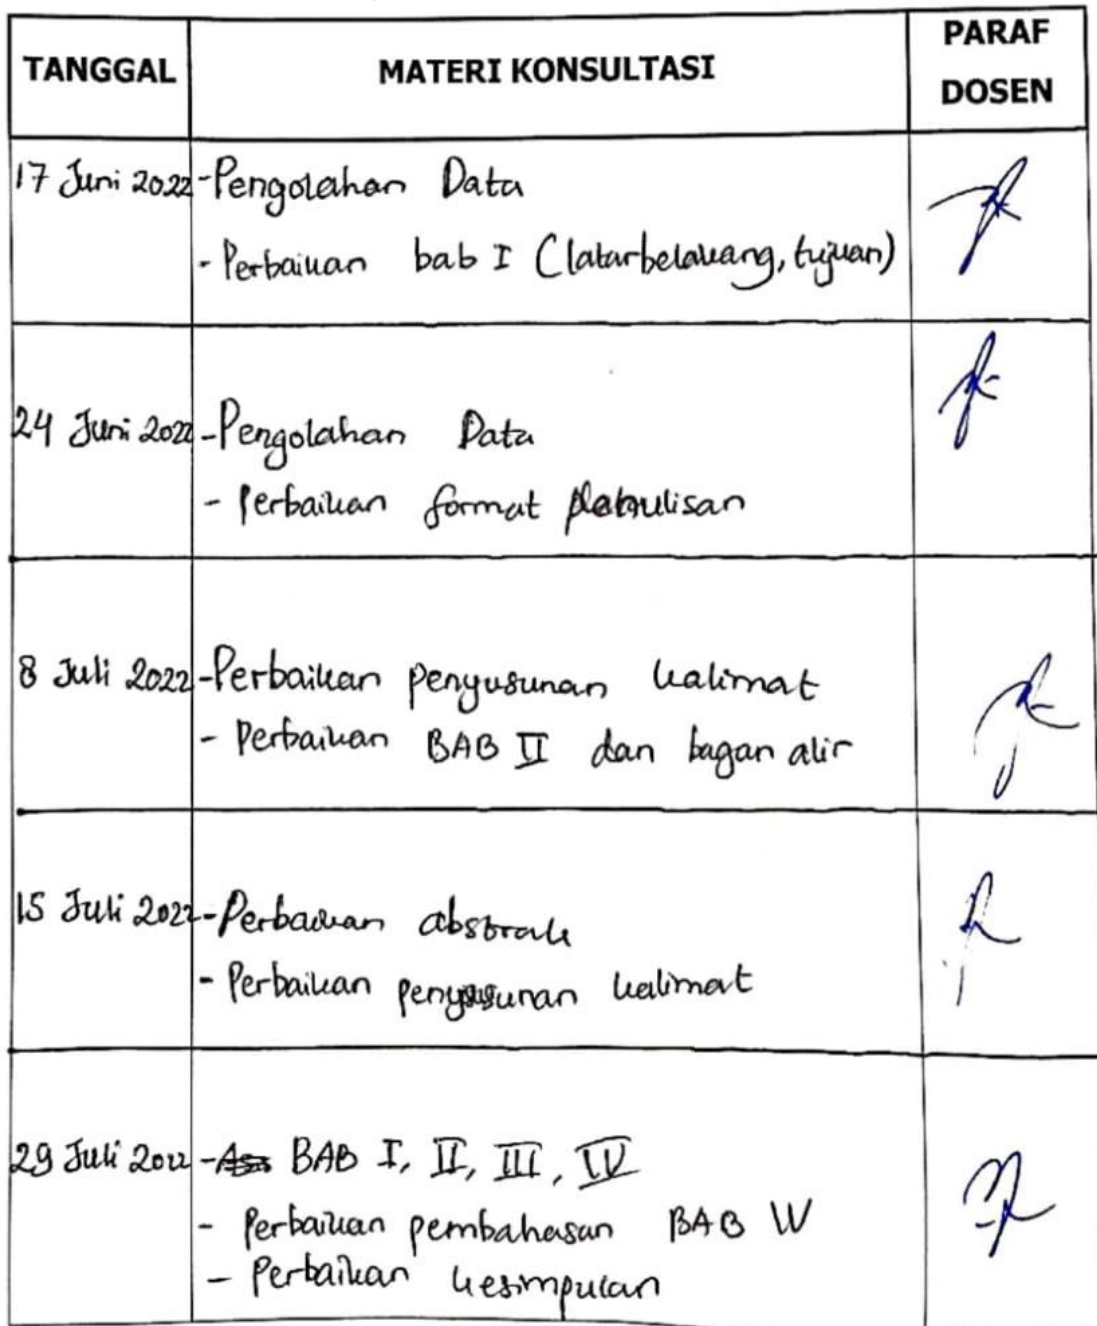 TANGGAL MATERI KONSULTASI PARAF DOSEN
17 Juni 2022 -Pengolahan Data
- Perbaikan bab I (latarbelakang, tujuan)
24 Juni 2022 -Pengolahan Data
- Perbaikan format penulisan
8 Juli 2022 -Perbaikan penyusunan kalimat
- Perbaikan BAB II dan bagan alir
15 Juli 2022 -Perbaikan abstrak
- Perbaikan penyusunan kalimat
29 Juli 2022 - BAB I, II, III, IV
- Perbaikan pembahasan BAB IV
- Perbaikan kesimpulan